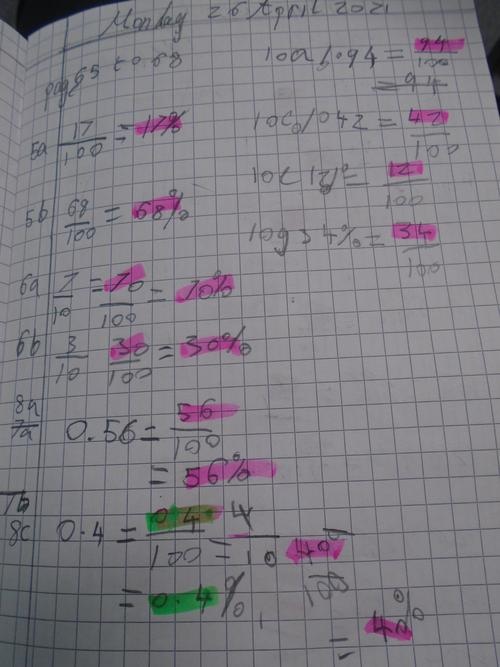 Monday 26 April 2021
pag65 to 68
5a 17/100 = 17%
5b 68/100 = 68%
6a 7/10 = 70/100 = 70%
6b 3/10 30/100 = 30%
8a
7a 0.56 = 56/100
= 56%
7b
8c 0.4 = 0.4/100 = 4/10 40/100
= 0.4%
= 40%
10a 1.94 = 94/100
= 94
42/100
10c 12% = 12/100
10g 34% = 34/100